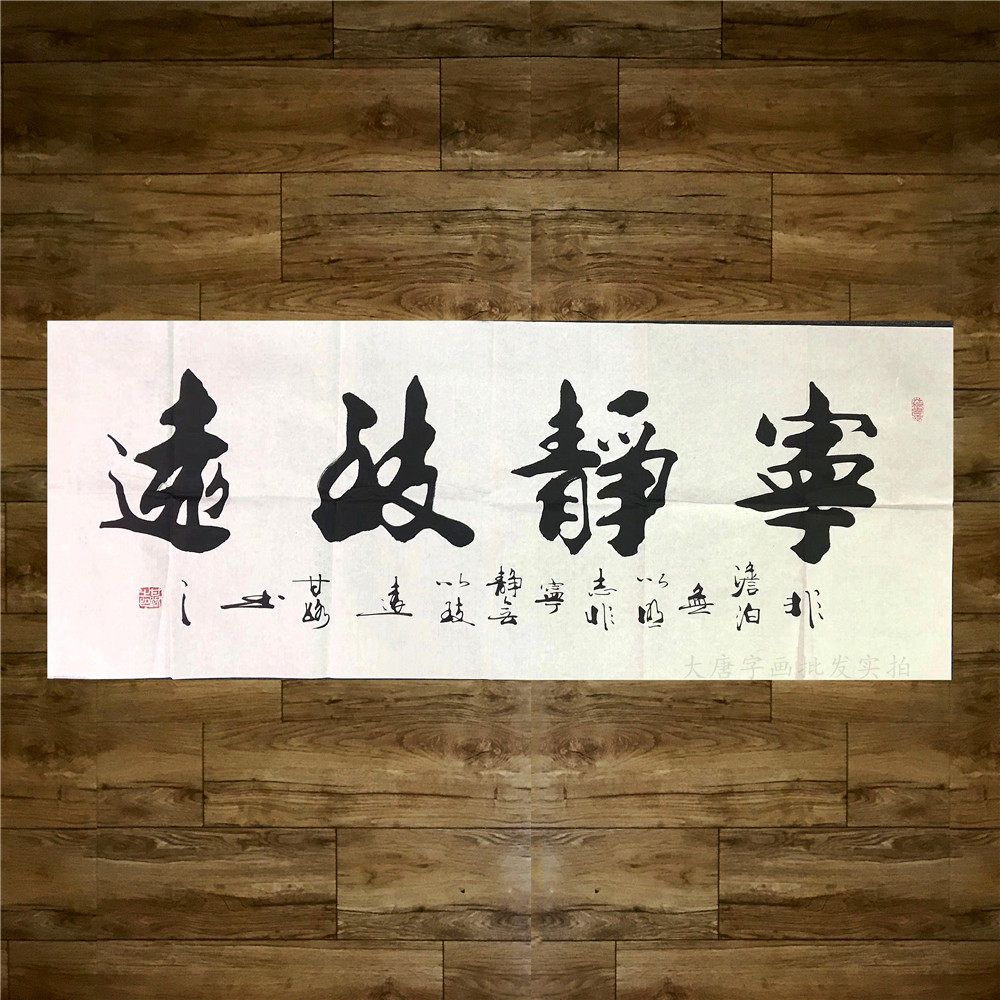 寧靜致遠
非澹泊無以明志非寧靜無以致遠
书之
大唐字画批发实拍